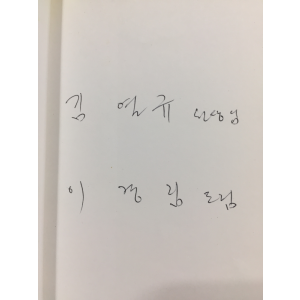 김 열규 선생님
이 경림 드림